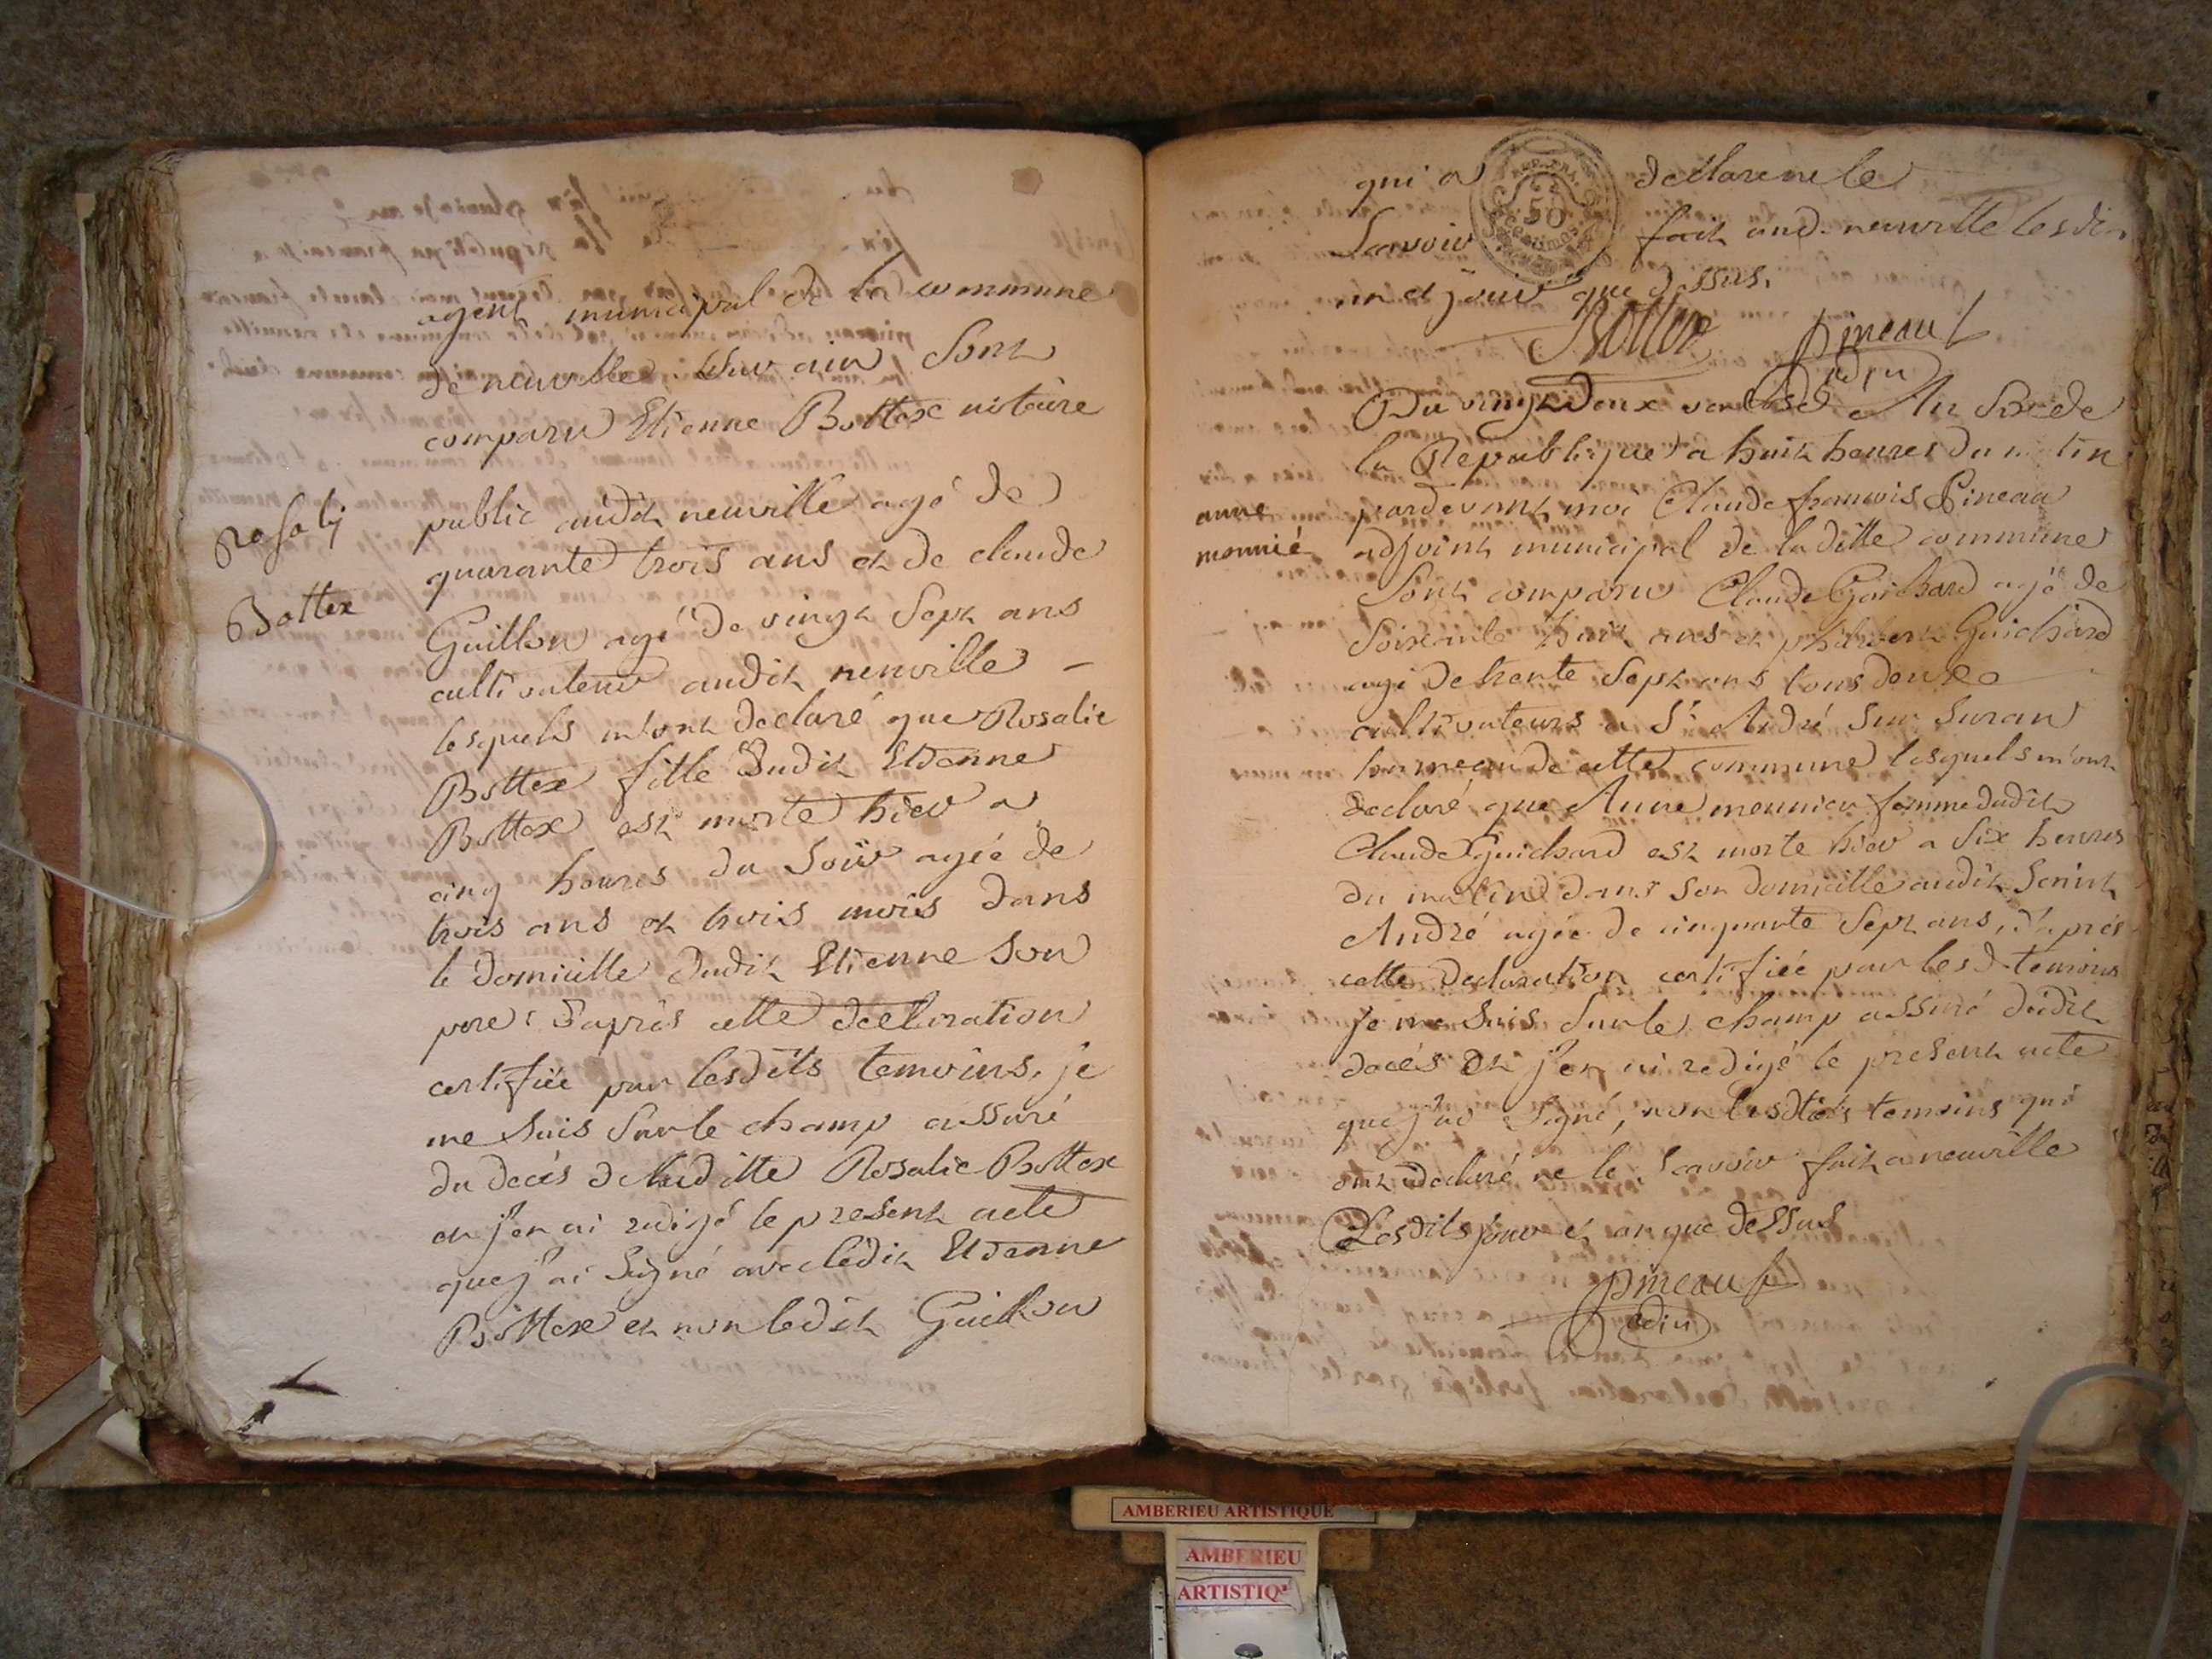 agent municipal de la commune
de neuville sur ain Sont
comparu Etienne Bottex notaire
public audit neuville agé de
quarante trois ans et de claude
Guillon agé de vingt Sept ans
cultivateur audit neuville –
lesquels m'ont declaré que Rosalie
Bottex fille dudit Etienne
Bottex est morte hier a
cinq heures du Soir agée de
trois ans et trois mois dans
le domicille dudit Etienne Son
pere. D'après cette declaration
certifiée par lesdits temoins, je
me Suis Sur le champ assuré
du decès de laditte Rosalie Bottex
et j'en ai redigé le present acte
que j'ai Signé avec ledit Etienne
Bottex et non ledit Guillon
Rosaly
Bottex
qui a declaré ne le
Savoir fait aud. neuville lesdits
an et jour que dessus.
Bottex Pineau
adju
REP. FRA.
50
Centimes
Du vingt deux ventose An Six de
la Republique a huit heures du matin
pardevant moi Claude francois Pineau
adjoint municipal de laditte commune
Sont comparu Claude Guichard agé de
Soixante huit ans et Guichard
agé de trente Sept ans tous deux
cultivateurs a St André Sur Suran
hameau de cette commune lesquels m'ont
declaré que Anne meunier femme dudit
Claude Guichard est morte hier a Six heures
du matin dans son domicille audit Saint
André agée de cinquante Sept ans, d'après
cette declaration certifiée par lesd. temoins
je me Suis Sur le champ assuré dudit
decès et j'en ai redigé le present acte
que j'ai Signé, non lesdits temoins qui
ont declaré ne le Scavoir fait a neuville
Lesdits jour et an que dessus
Pineau
adju
anne
monnié
AMBERIEU ARTISTIQUE
AMBERIEU
ARTISTIQ